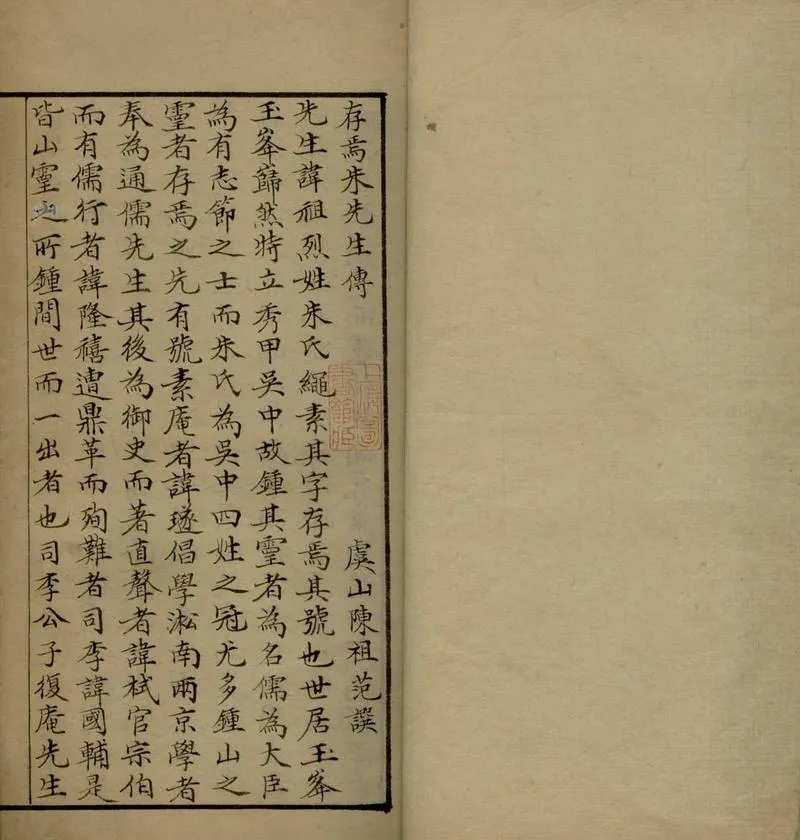 存焉朱先生傳
虞山陳祖范譔
先生諱祖烈姓朱氏繩素其字存焉其號也世居玉峯
玉峯巋然特立秀甲吳中故鍾其靈者為名儒為大臣
為有志節之士而朱氏為吳中四姓之冠尤多鍾山之
靈者存焉之先有號素庵者諱璲倡學淞南兩京學者
奉為通儒先生其後為御史而著直聲者諱栻官宗伯
而有儒行者諱隆禧遭鼎革而殉難者司李諱國輔是
皆山靈之所鍾間世而一出者也司李公子復庵先生